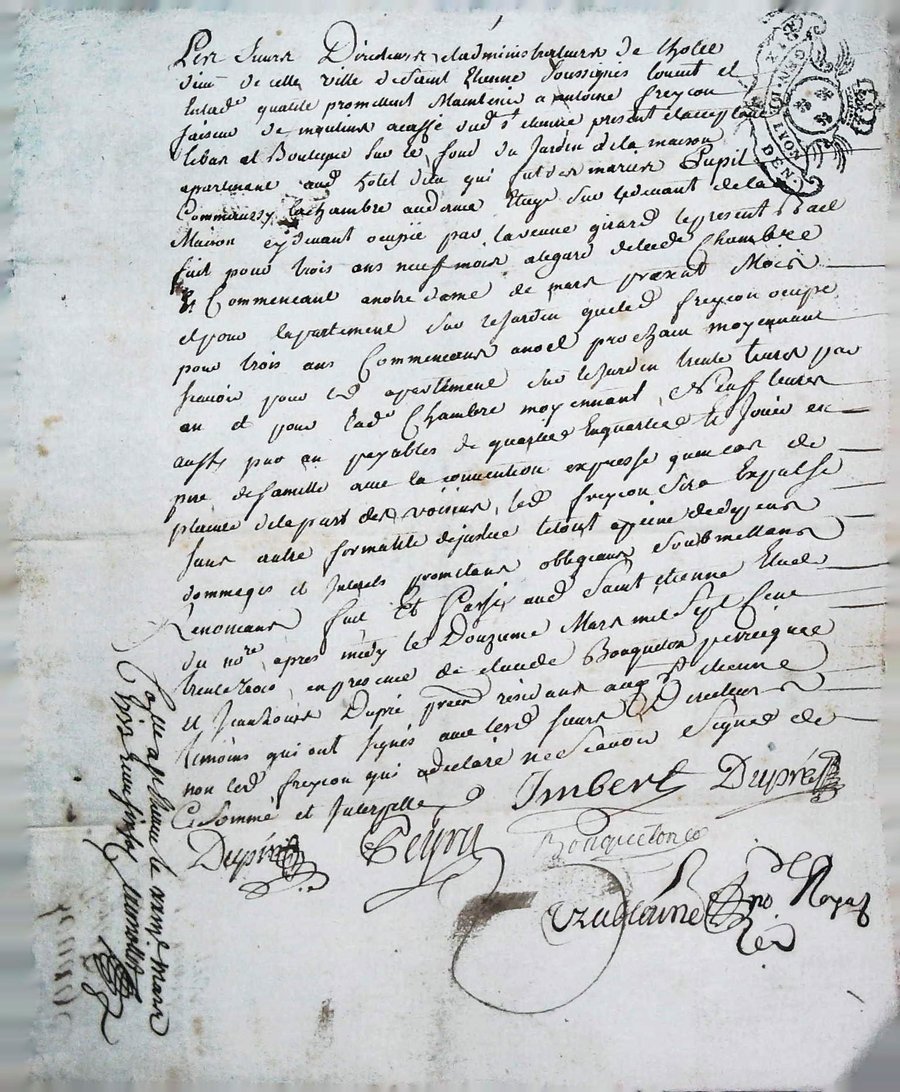 Les sieurs Directeurs et administrateurs de lhotel
dieu de cette ville de Saint Etienne Soussignés louent et
en lad qualité promettent Maintenir a antoine freycon
faiseur de moulins a caffé dud st etienne present et acceptant
le bas et Boutique Sur le fond du Jardin de la maison
apartenant aud hotel dieu qui fut des maries Pupil
Commencey, la chambre au Etage Sur le devant de la
Maison cy devant ocupée par la veuve girard le present Bail
fait pour trois ans neuf mois a legard de lad Chambre
Commencant a notre dame de mars present Mois
et pour lapartement Sur le Jardin que led freycon ocupe
pour trois ans Commencans a noel prochain moyennant
scavoir pour led apartement Sur le Jardin trente livres par
an et pour lad Chambre moyennant neuf livres
aussy par an payables de quartier en quartier le Jouir en
pere de famille avec la convention expresse quen cas de
plainte de la part des voisins, led freycon sera Expulse
sans autre formalité de justice le tout a peine de depens
dommages et Interets promettans obligeans Soubmettans
Renonceans fait Et Passé aud Saint etienne Etude
du nore apres midy le Douzieme Mars mil Sept Cent
trente trois, en presence de claude Bouqueton perruquier
et Jean louis Dupré residans aud St Etienne
temoins qui ont signés avec lesd sieurs Directeurs
non led freycon qui a declaré ne Scavoir Signer de
Ce Sommé et Interpellé
Imbert Dupré
Dupin Peyru Bouqueton
no Royal
GEN. DE LYON
le vingt mars